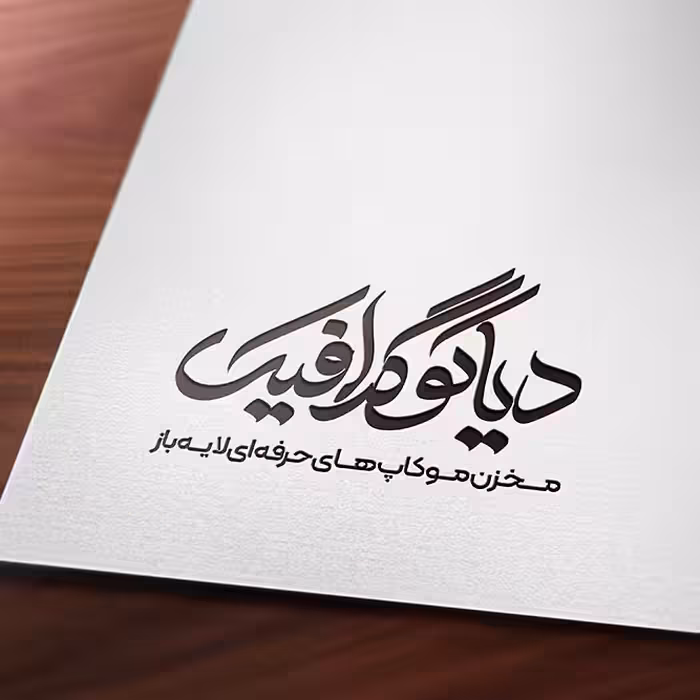 دیاکوگرافیک
مخزن موکاپ‌های حرفه‌ای لایه باز